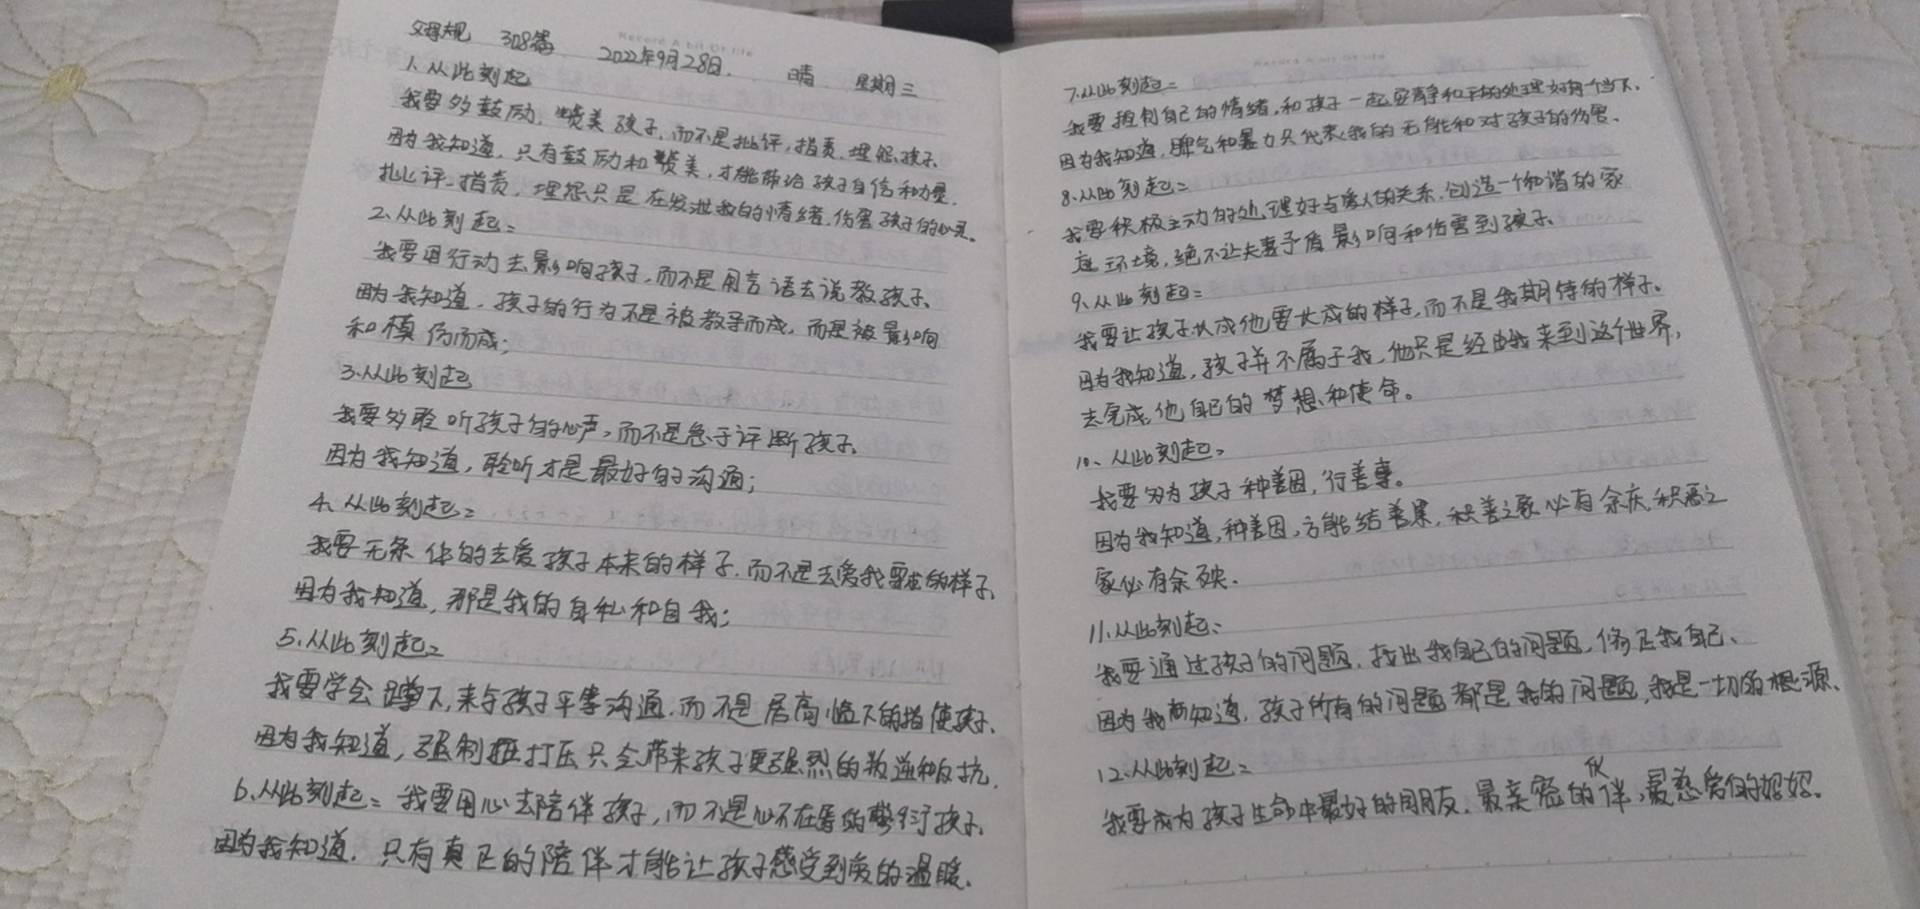 父母规 308篇 2022年9月28日. 晴 星期三
1.从此刻起
我要多鼓励,赞美孩子,而不是批评,指责,埋怨孩子.
因为我知道,只有鼓励和赞美,才能带给孩子自信和力量.
批评.指责,埋怨只是在发泄我的情绪,伤害孩子的心灵。
2.从此刻起:
我要用行动去影响孩子,而不是用言语去说教孩子、
因为我知道,孩子的行为不是被教导而成,而是被影响
和模仿而成;
3.从此刻起
我要多聆听孩子的心声,而不是急于评断孩子.
因为我知道,聆听才是最好的沟通;
4.从此刻起:
我要无条件的去爱孩子本来的样子.而不是去爱我要求的样子,
因为我知道,那是我的自私和自我;
5.从此刻起:
我要学会蹲下,来与孩子平等沟通.而不是居高临下的指使孩子.
因为我知道,强制打压只会带来孩子更强烈的叛逆和反抗.
6.从此刻起:我要用心去陪伴孩子,而不是心不在焉的敷衍孩子.
因为我知道.只有真正的陪伴才能让孩子感受到爱的温暖.
7.从此刻起:
我要控制自己的情绪,和孩子一起安静和平的处理好每一个当下.
因为我知道,脾气和暴力只代表我的无能和对孩子的伤害.
8.从此刻起:
我要积极主动的处理好与爱人的关系,创造一个和谐的家
庭环境,绝不让夫妻矛盾影响和伤害到孩子.
9.从此刻起:
我要让孩子长成他要长成的样子,而不是我期待的样子。
因为我知道,孩子并不属于我,他只是经由我来到这个世界,
去完成他自己的梦想和使命。
10、从此刻起,
我要多为孩子种善因,行善事。
因为我知道,种善因,方能结善果,积善之家必有余庆,积恶之
家必有余殃.
11.从此刻起、
我要通过孩子的问题,找出我自己的问题,修正我自己、
因为我知道,孩子所有的问题都是我的问题,我是一切的根源.
12.从此刻起:
我要成为孩子生命中最好的朋友.最亲密的伙伴,最慈爱的妈妈.